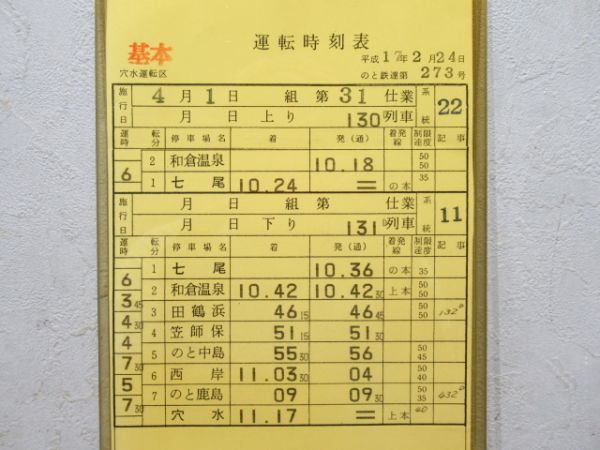 運転時刻表
基本
平成17年2月24日
穴水運転区
のと鉄運第273号
施行日 4月1日 組第31仕業 系統 22
月 日上り 130列車
運時 転分 停車場名 着 発(通) 着発線 制限速度 記事
2 和倉温泉 10.18 50 50
6
1 七尾 10.24 = の本 35
施行日 月 日 組第 仕業 系統 11
月 日下り 131列車
運時 転分 停車場名 着 発(通) 着発線 制限速度 記事
1 七尾 10.36 の本 35
6
2 和倉温泉 10.42 10.42 30 上本 50 50
3 45
3 田鶴浜 46 15 46 45 50 50 132D
4 30
4 笠師保 51 15 51 30
4
5 のと中島 55 30 56 50 45
7 30
6 西岸 11.03 30 04 50 40
5
7 のと鹿島 09 09 30 50 432D
7 30
穴水 11.17 = 上本 40